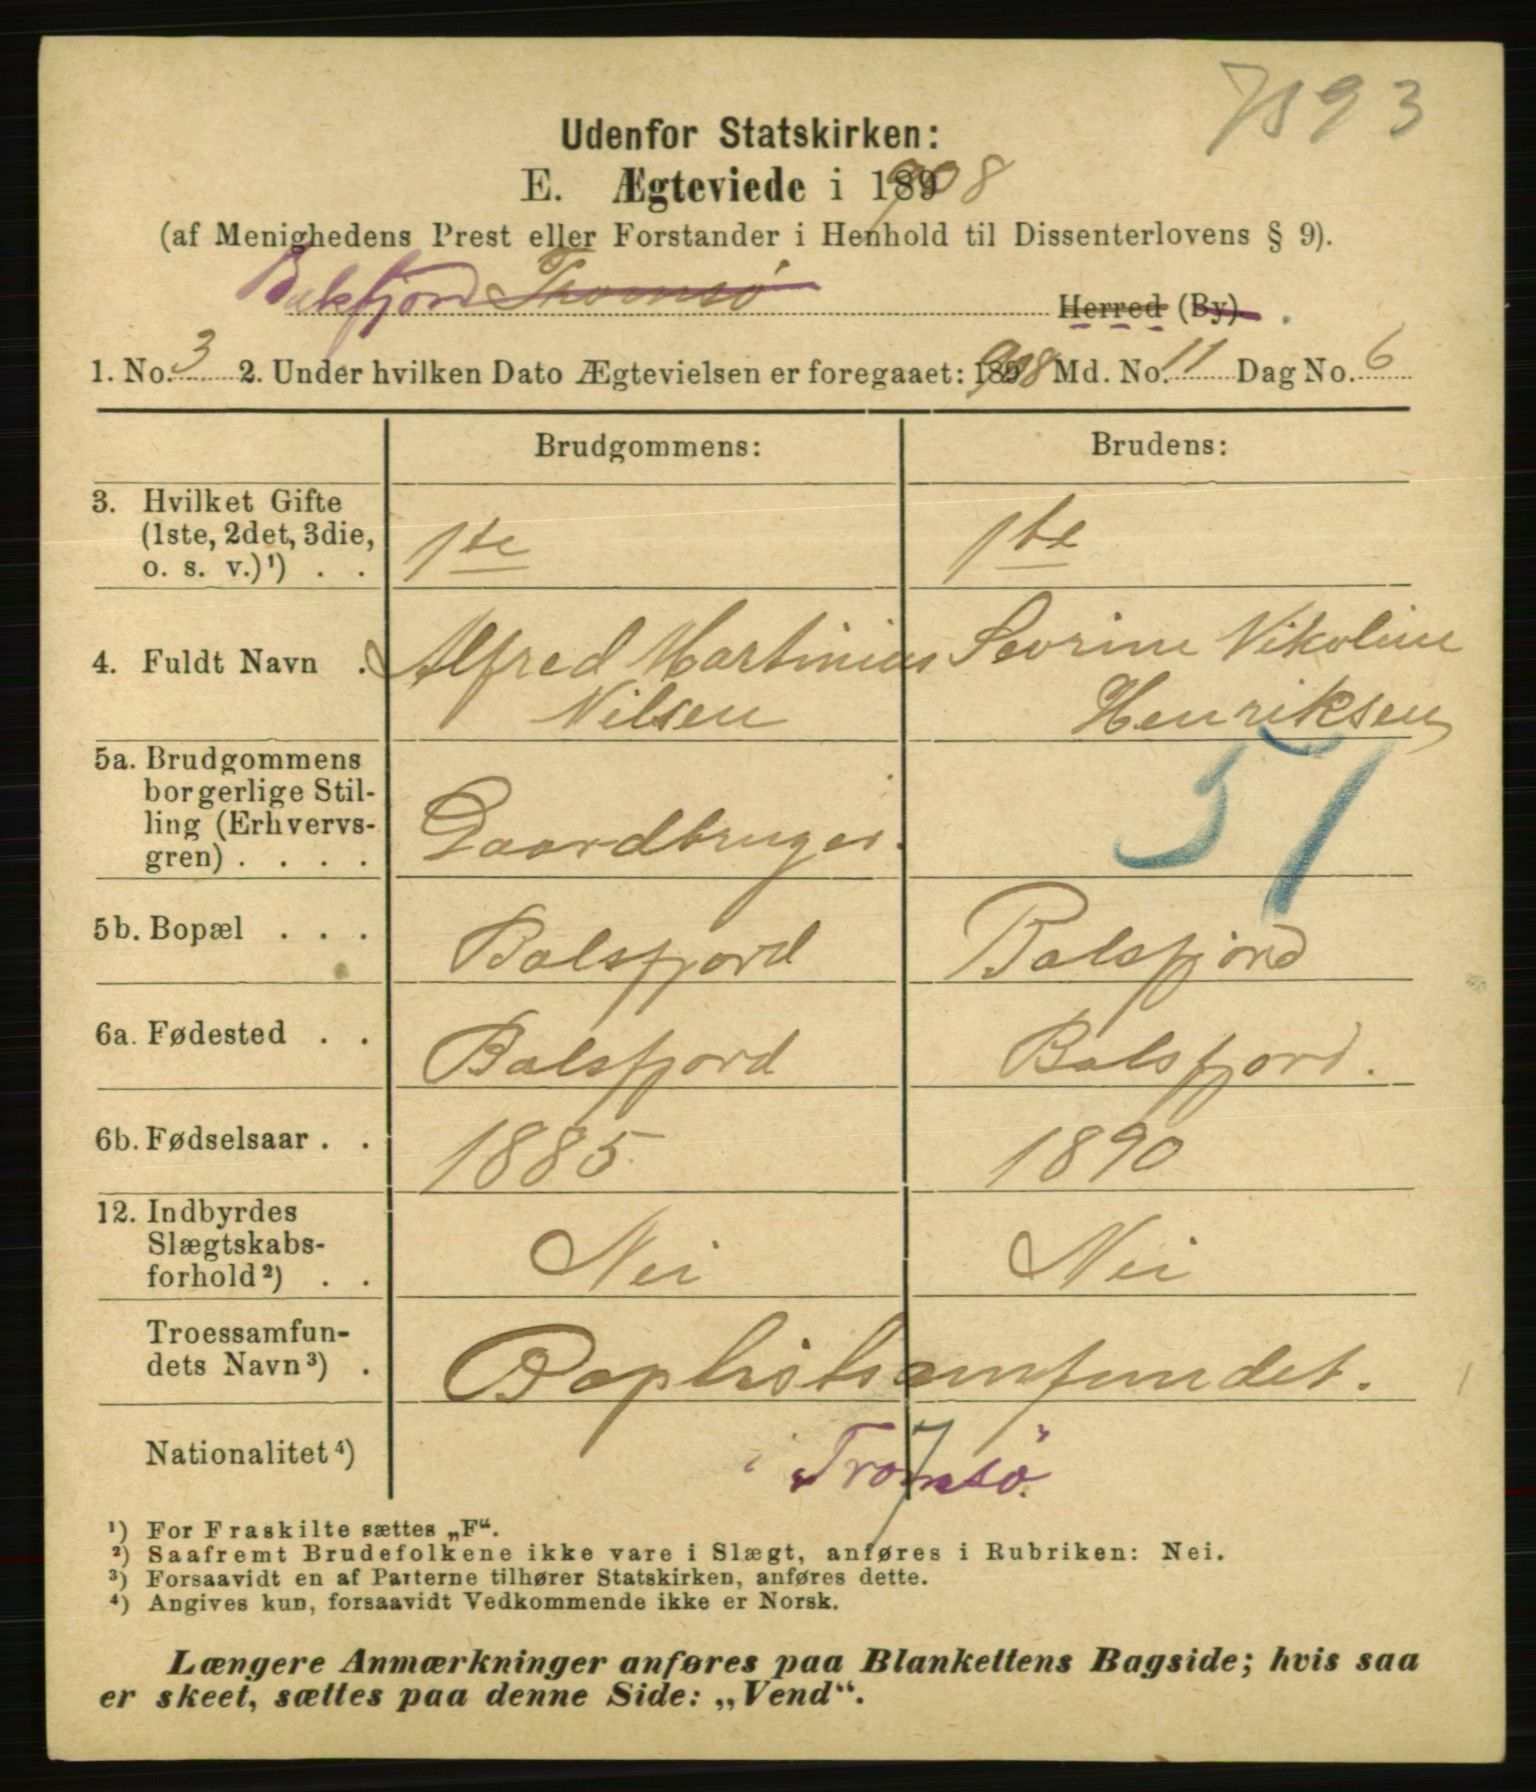 7893
Udenfor Statskirken:
E. Ægteviede i 1908
(af Menighedens Prest eller Forstander i Henhold til Dissenterlovens § 9).
Balsfjord Tromsø Herred (By).
1. No. 3 2. Under hvilken Dato Ægtevielsen er foregaaet: 1908 Md. No. 11 Dag No. 6
Brudgommens: Brudens:
3. Hvilket Gifte
(1ste, 2det, 3die,
o. s. v.)¹) . . 1ste 1ste
4. Fuldt Navn . Alfred Martinius Nilsen Sevrine Nikoline Henriksen
5a. Brudgommens
borgerlige Stil-
ling (Erhvervs-
gren) . . . . Gaardbruger. 51
5b. Bopæl . . . Balsfjord Balsfjord
6a. Fødested . . Balsfjord Balsfjord.
6b. Fødselsaar . . 1885 1890
12. Indbyrdes
Slægtskabs-
forhold²) . . Nei Nei
Troessamfun-
dets Navn³) . Baptistsamfundet.
Nationalitet⁴) i Tromsö. 7
¹) For Fraskilte sættes „F“.
²) Saafremt Brudefolkene ikke vare i Slægt, anføres i Rubriken: Nei.
³) Forsaavidt en af Parterne tilhører Statskirken, anføres dette.
⁴) Angives kun, forsaavidt Vedkommende ikke er Norsk.
Længere Anmærkninger anføres paa Blankettens Bagside; hvis saa
er skeet, sættes paa denne Side: „Vend“.